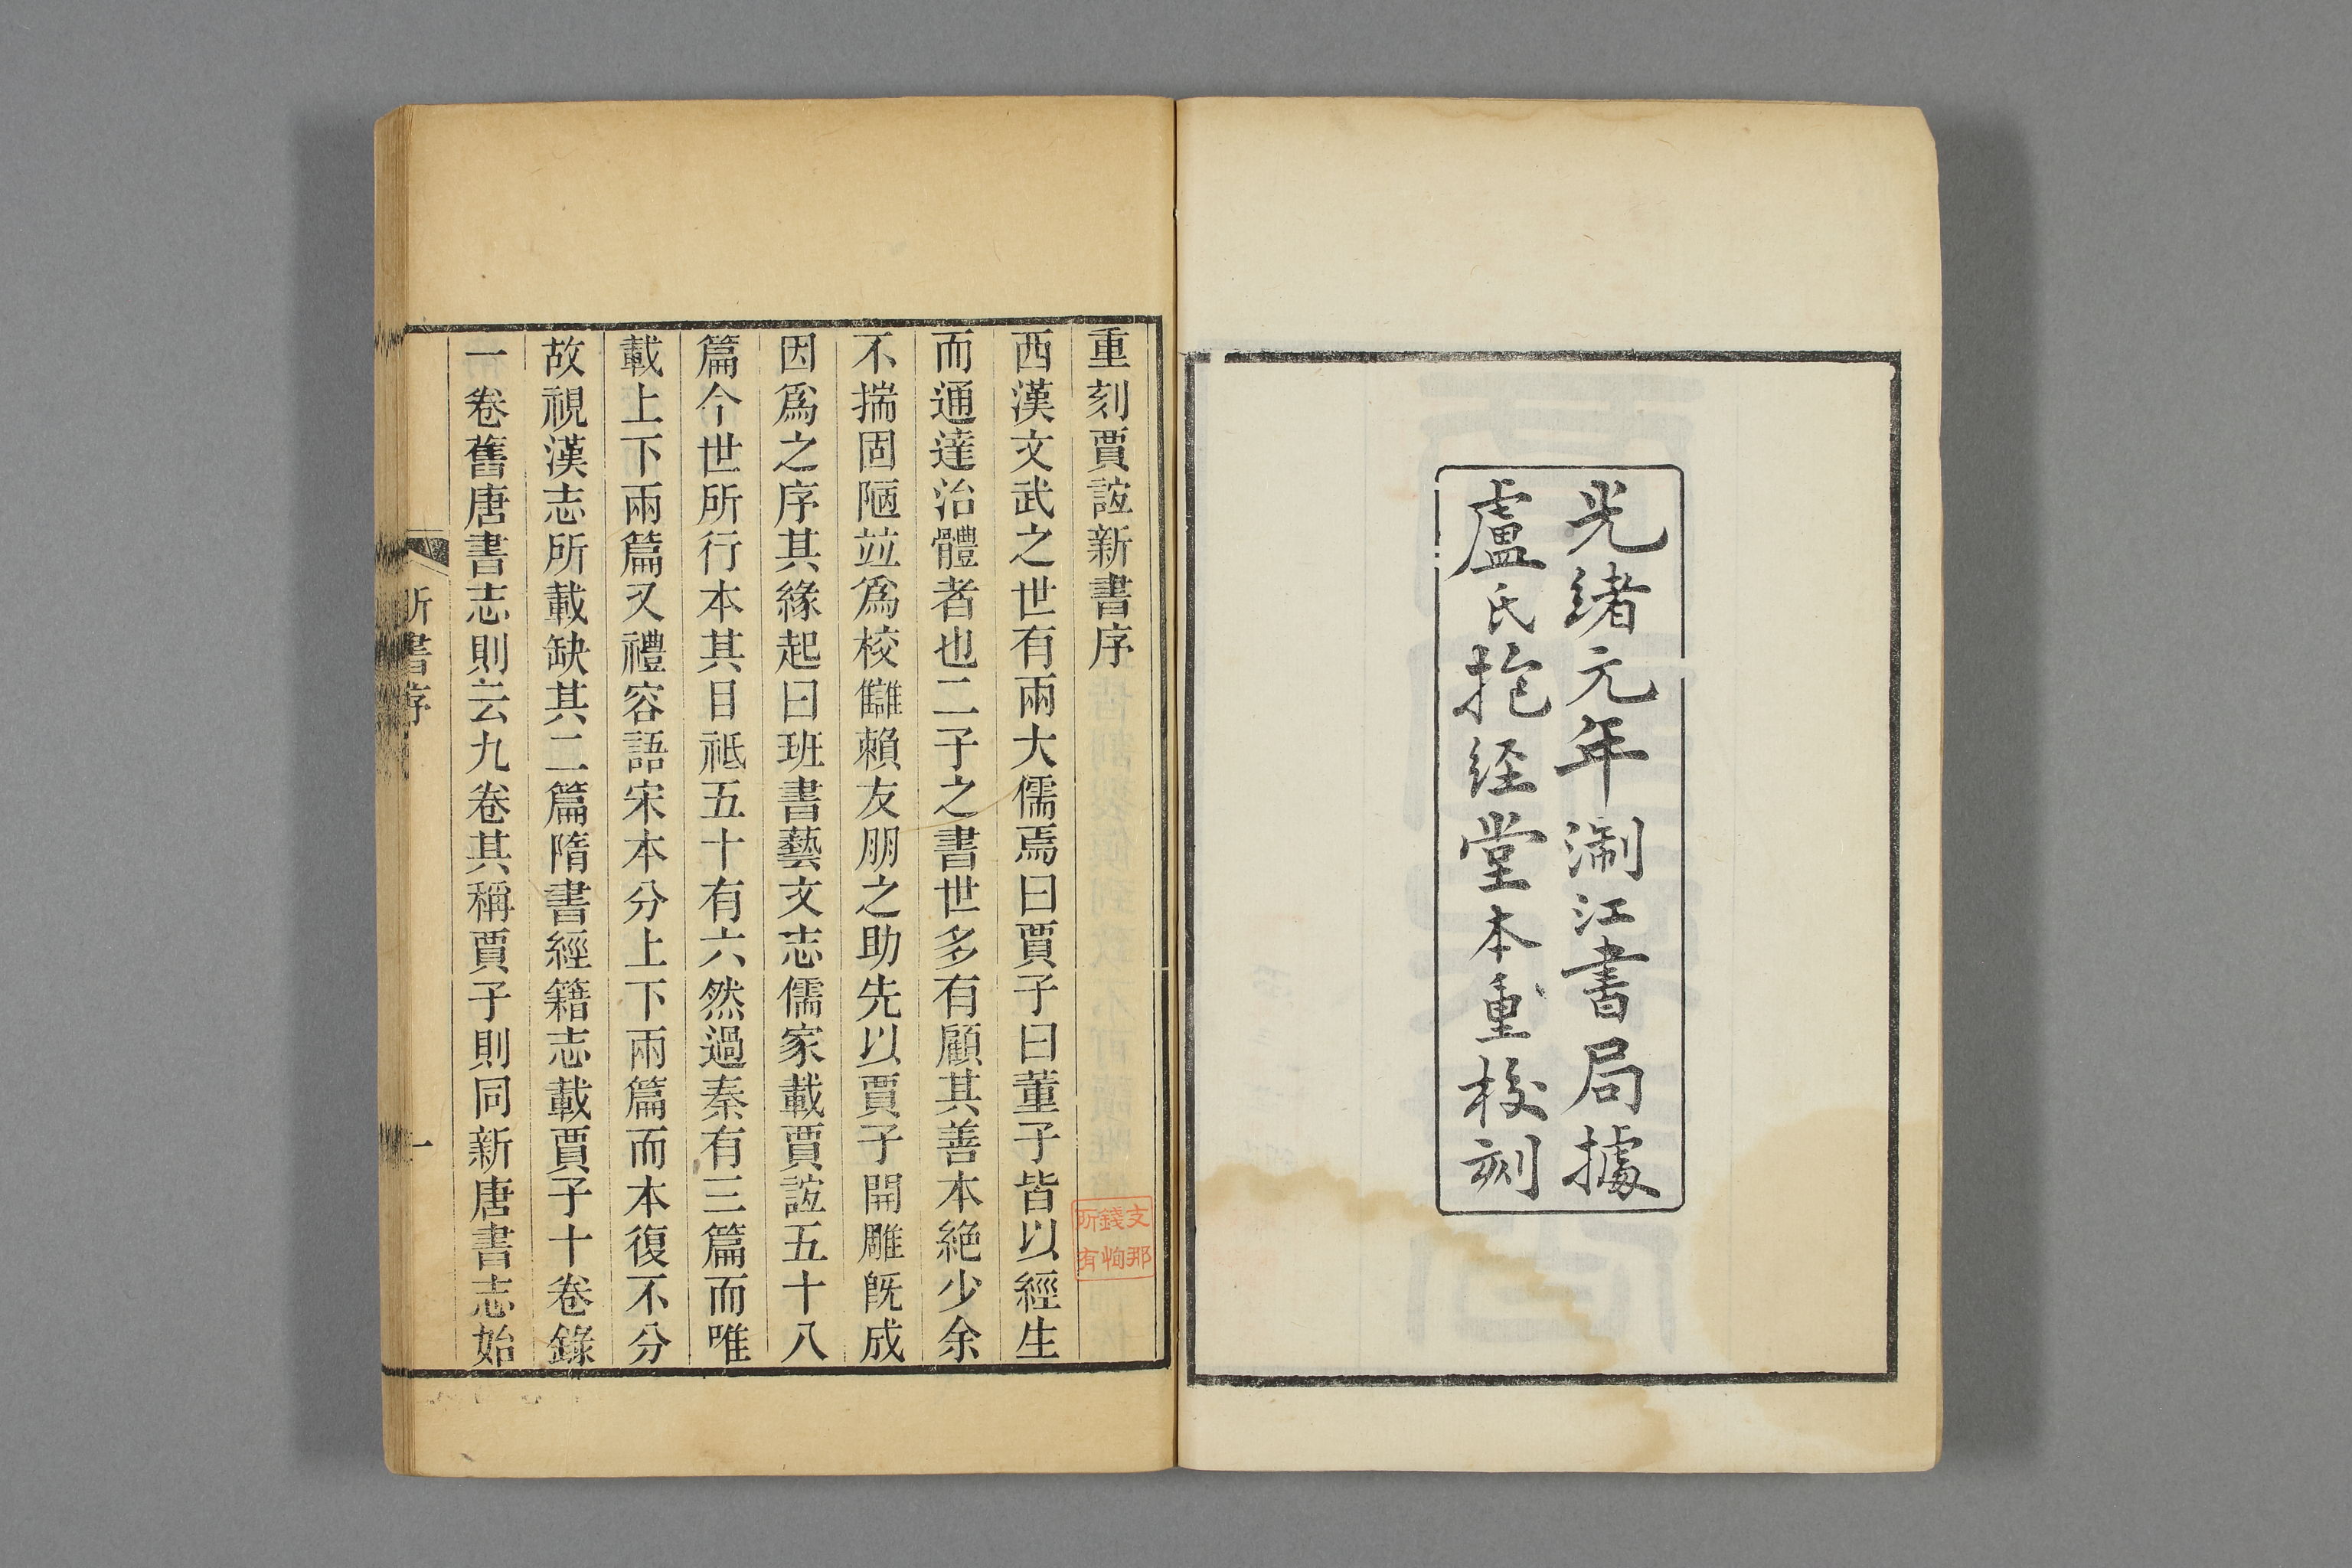 光緒元年淛江書局據
盧氏抱经堂本重校刻
重刻賈誼新書序
西漢文武之世有兩大儒焉曰賈子曰董子皆以經生
而通達治體者也二子之書世多有顧其善本絶少余
不揣固陋竝爲校讎賴友朋之助先以賈子開雕旣成
因爲之序其緣起曰班書藝文志儒家載賈誼五十八
篇今世所行本其目祗五十有六然過秦有三篇而唯
載上下兩篇又禮容語宋本分上下兩篇而本復不分
故視漢志所載缺其二篇隋書經籍志載賈子十卷錄
一卷舊唐書志則云九卷其稱賈子則同新唐書志始
新書序
一
支那
錢恂
所有